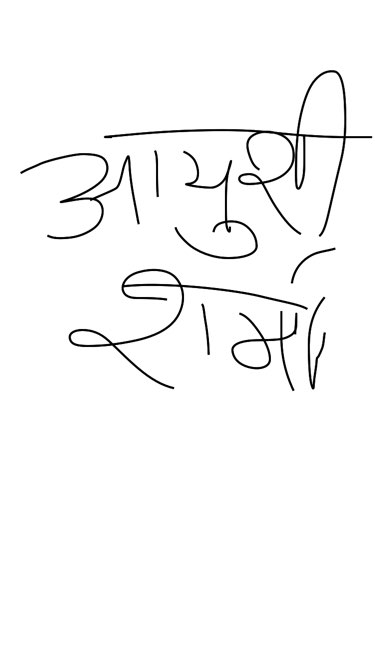 आयुशी
शर्मा